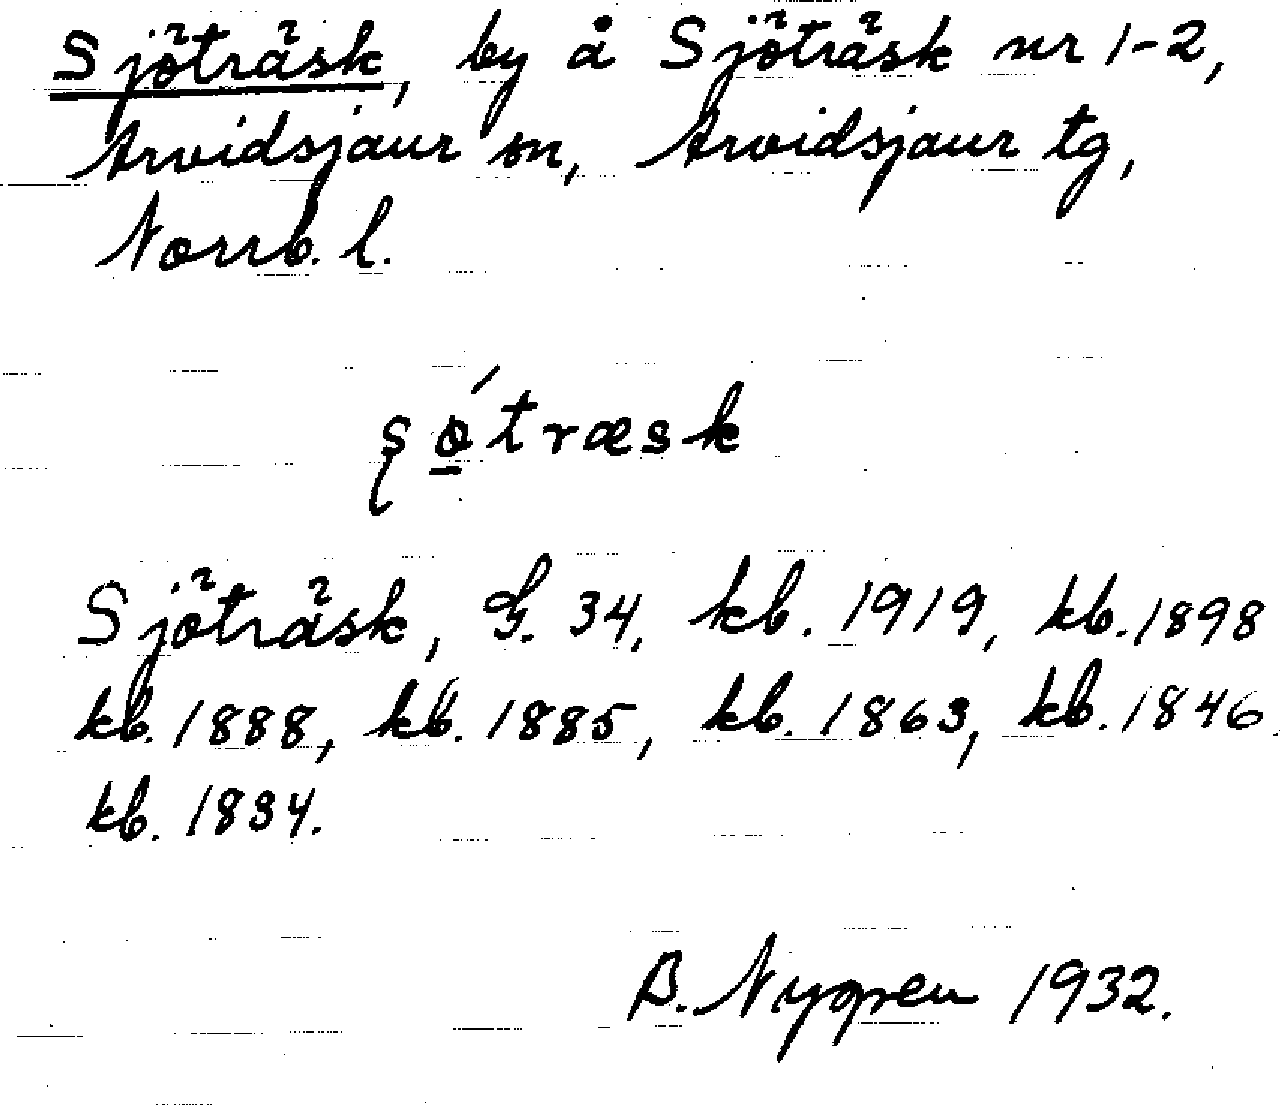 Sjöträsk, by å Sjöträsk nr 1-2,
Arvidsjaur sn, Arvidsjaur tg,
Norrb. l.
Sjöträsk, G. 34, kb. 1919, kb. 1898
kb. 1888, kb. 1885, kb. 1863, kb. 1846
kb. 1834.
B. Nygren 1932.